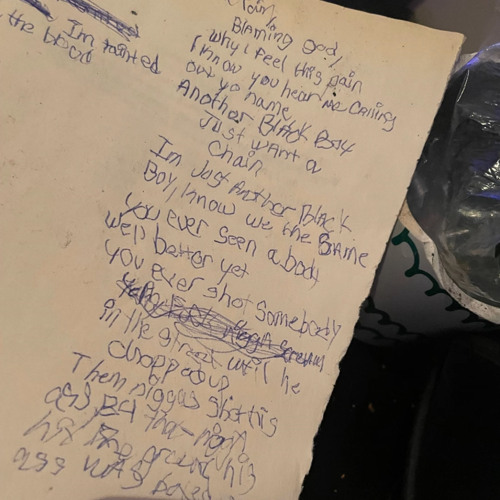 Im painted
the block
Blaming god,
why I feel this pain
I know you hear me calling
out yo name
Another Black Boy
Just want a
chain
Im Just Another Black
Boy, know we the Blame
you ever seen a body
well better yet
you ever shot somebody
in the street until he
dropped up
Them niggas shot his
ass that night
his the ground his
ass was